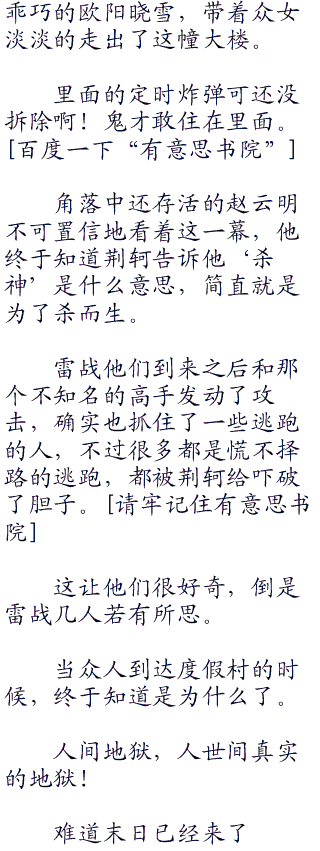 乖巧的欧阳晓雪，带着众女
淡淡的走出了这幢大楼。
里面的定时炸弹可还没
拆除啊！鬼才敢住在里面。
[百度一下“有意思书院”]
角落中还存活的赵云明
不可置信地看着这一幕，他
终于知道荆轲告诉他‘杀
神’是什么意思，简直就是
为了杀而生。
雷战他们到来之后和那
个不知名的高手发动了攻
击，确实也抓住了一些逃跑
的人，不过很多都是慌不择
路的逃跑，都被荆轲给吓破
了胆子。[请牢记住有意思书
院]
这让他们很好奇，倒是
雷战几人若有所思。
当众人到达度假村的时
候，终于知道是为什么了。
人间地狱，人世间真实
的地狱！
难道末日已经来了